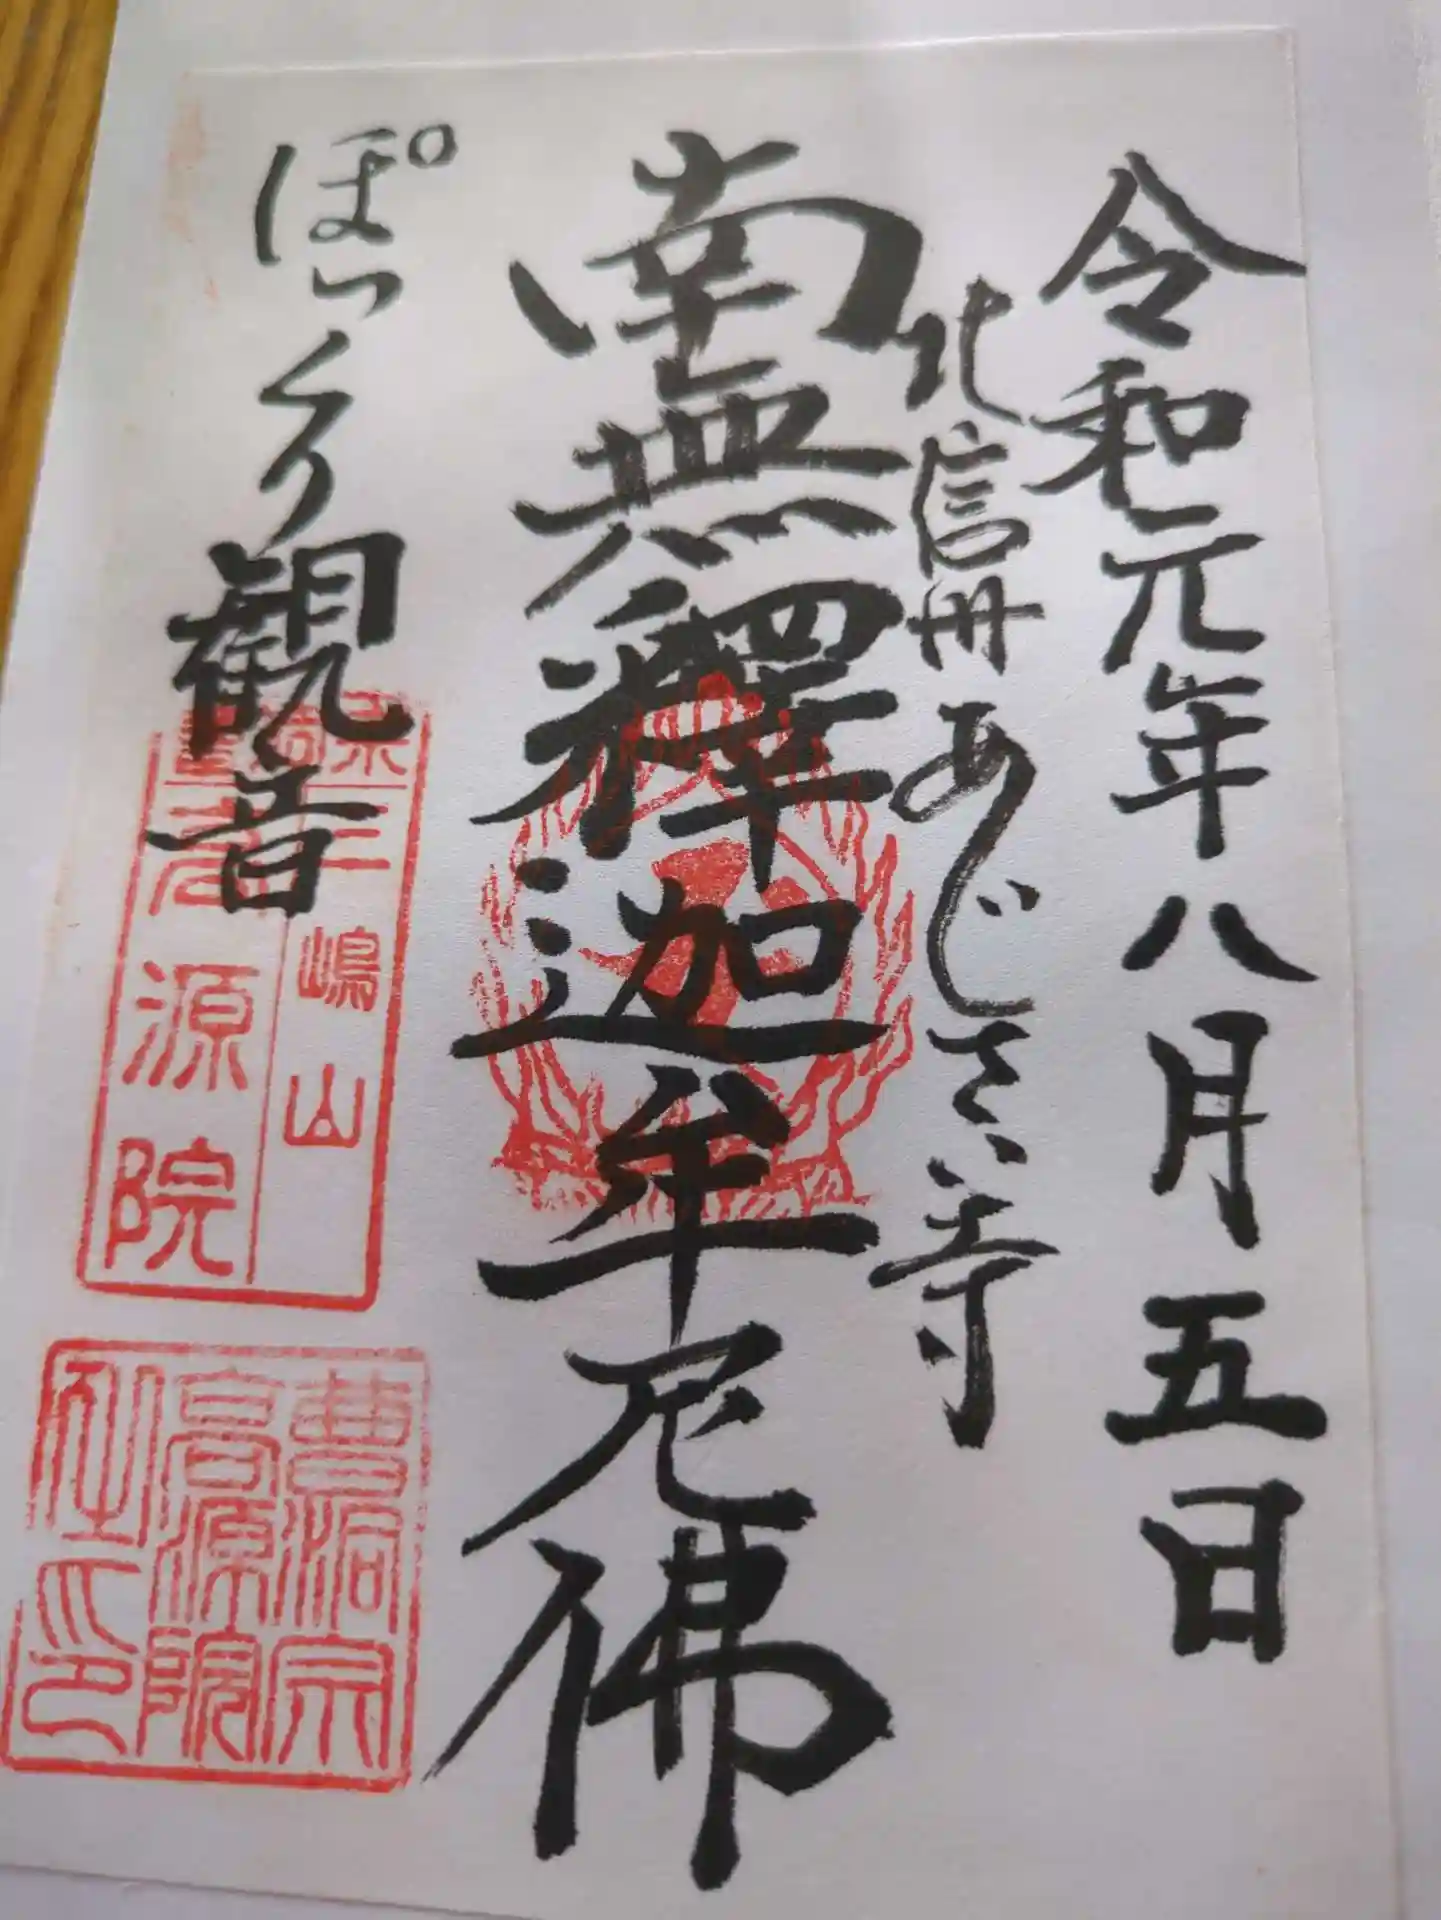 令和元年八月五日
北信州あじさい寺
南無釋迦牟尼佛
ぽっくり観音
二嶋山
源院
曹洞宗
高源院
印